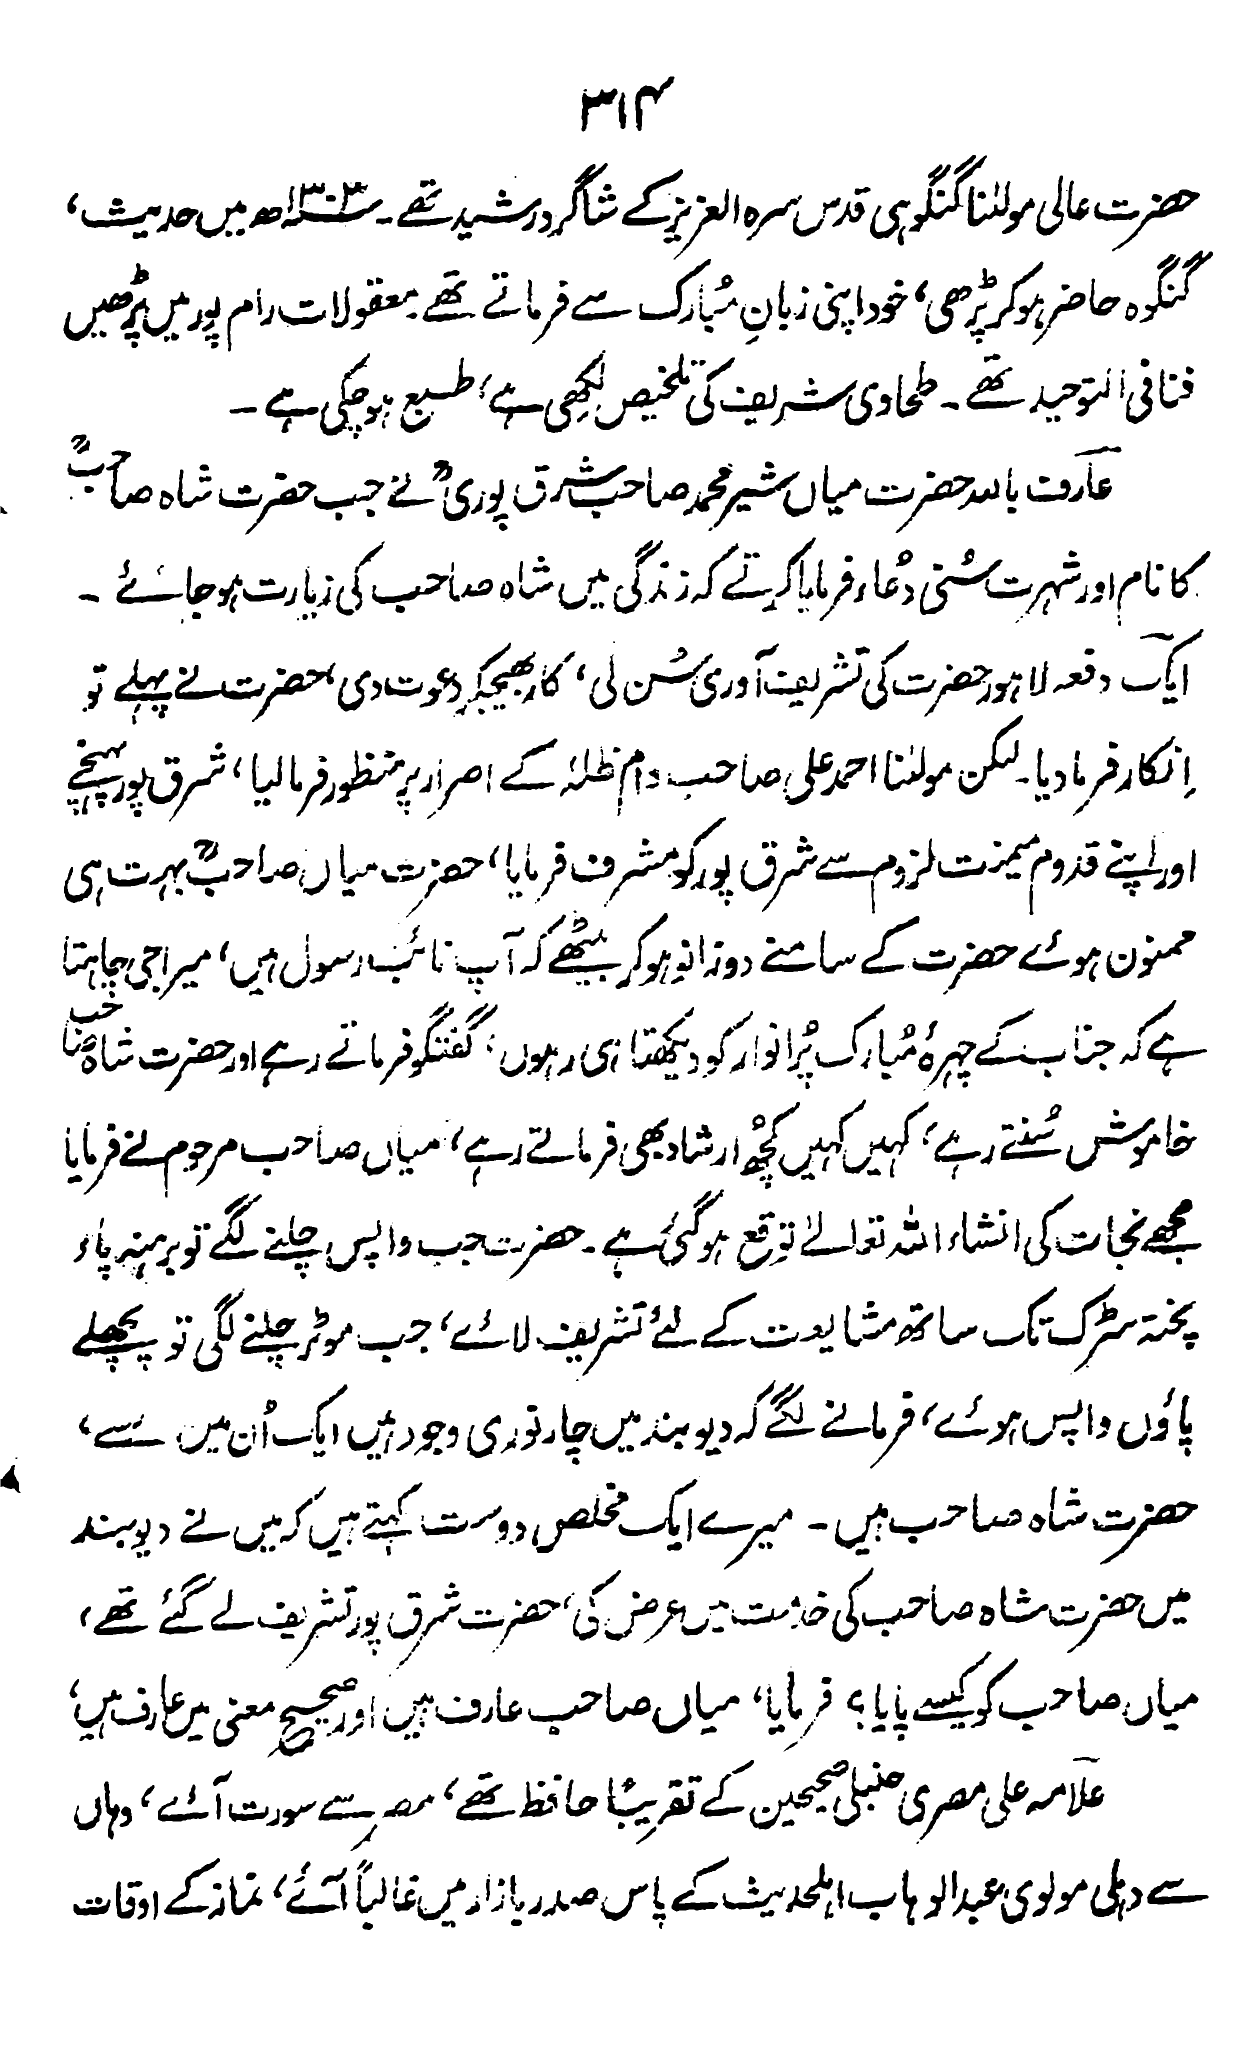 ۳۱۴
حضرت عالی مولٰنا گنگوہی قدس سرہ العزیز کے شاگرد رشید تھے۔ ۱۳۰۳ھ میں حدیث،
گنگوہ حاضر ہو کر پڑھی، خود اپنی زبانِ مُبارک سے فرماتے تھے۔ معقولات رام پور میں پڑھیں
فنا فی التوحید تھے۔ طحاوی شریف کی تلخیص لکھی ہے، طبع ہو چکی ہے۔
عارف باللہ حضرت میاں شیر محمد صاحب شرق پوریؒ نے جب حضرت شاہ صاحبؒ
کا نام اور شہرت سُنی دُعاء فرمایا کرتے کہ زندگی میں شاہ صاحب کی زیارت ہو جائے۔
ایک دفعہ لاہور حضرت کی تشریف آوری سُن لی، کار بھیجکر دعوت دی، حضرت نے پہلے تو
اِنکار فرما دیا۔ لیکن مولٰنا احمد علی صاحب دام ظلہٗ کے اصرار پر منظور فرما لیا، شرق پور پہنچے
اور اپنے قدوم میمنت لزوم سے شرق پور کو مشرف فرمایا، حضرت میاں صاحبؒ بہت ہی
ممنون ہوئے حضرت کے سامنے دو زانو ہو کر بیٹھے کہ آپ نائب رسول ہیں، میرا جی چاہتا
ہے کہ جناب کے چہرۂ مُبارک پُر انوار کو دیکھتا ہی رہوں، گفتگو فرماتے رہے اور حضرت شاہ صاحب
خاموش سُنتے رہے، کہیں کہیں کچُھ ارشاد بھی فرماتے رہے، میاں صاحب مرحوم نے فرمایا
مجھے نجات کی انشاء اللہ تعالےٰ توقع ہو گئی ہے۔ حضرت جب واپس چلنے لگے تو برہنہ پاء
پختہ سڑک تک ساتھ مشایعت کے لئے تشریف لائے، جب موٹر چلنے لگی تو پچھلے
پاؤں واپس ہوئے، فرمانے لگے کہ دیوبند میں چار نوری وجود ہیں ایک اُن میں سے،
حضرت شاہ صاحب ہیں۔ میرے ایک مخلص دوست کہتے ہیں کہ میں نے دیوبند
میں حضرت شاہ صاحب کی خدمت میں عرض کی، حضرت شرق پور تشریف لے گئے تھے،
میاں صاحب کو کیسے پایا؟ فرمایا، میاں صاحب عارف ہیں اور صحیح معنی میں عارف ہیں،
علّامہ علی مصری حنبلی صحیحین کے تقریباً حافظ تھے، مصر سے سورت آئے، وہاں
سے دہلی مولوی عبدالوہاب اہلحدیث کے پاس صدر بازار میں غالباً آئے، نماز کے اوقات